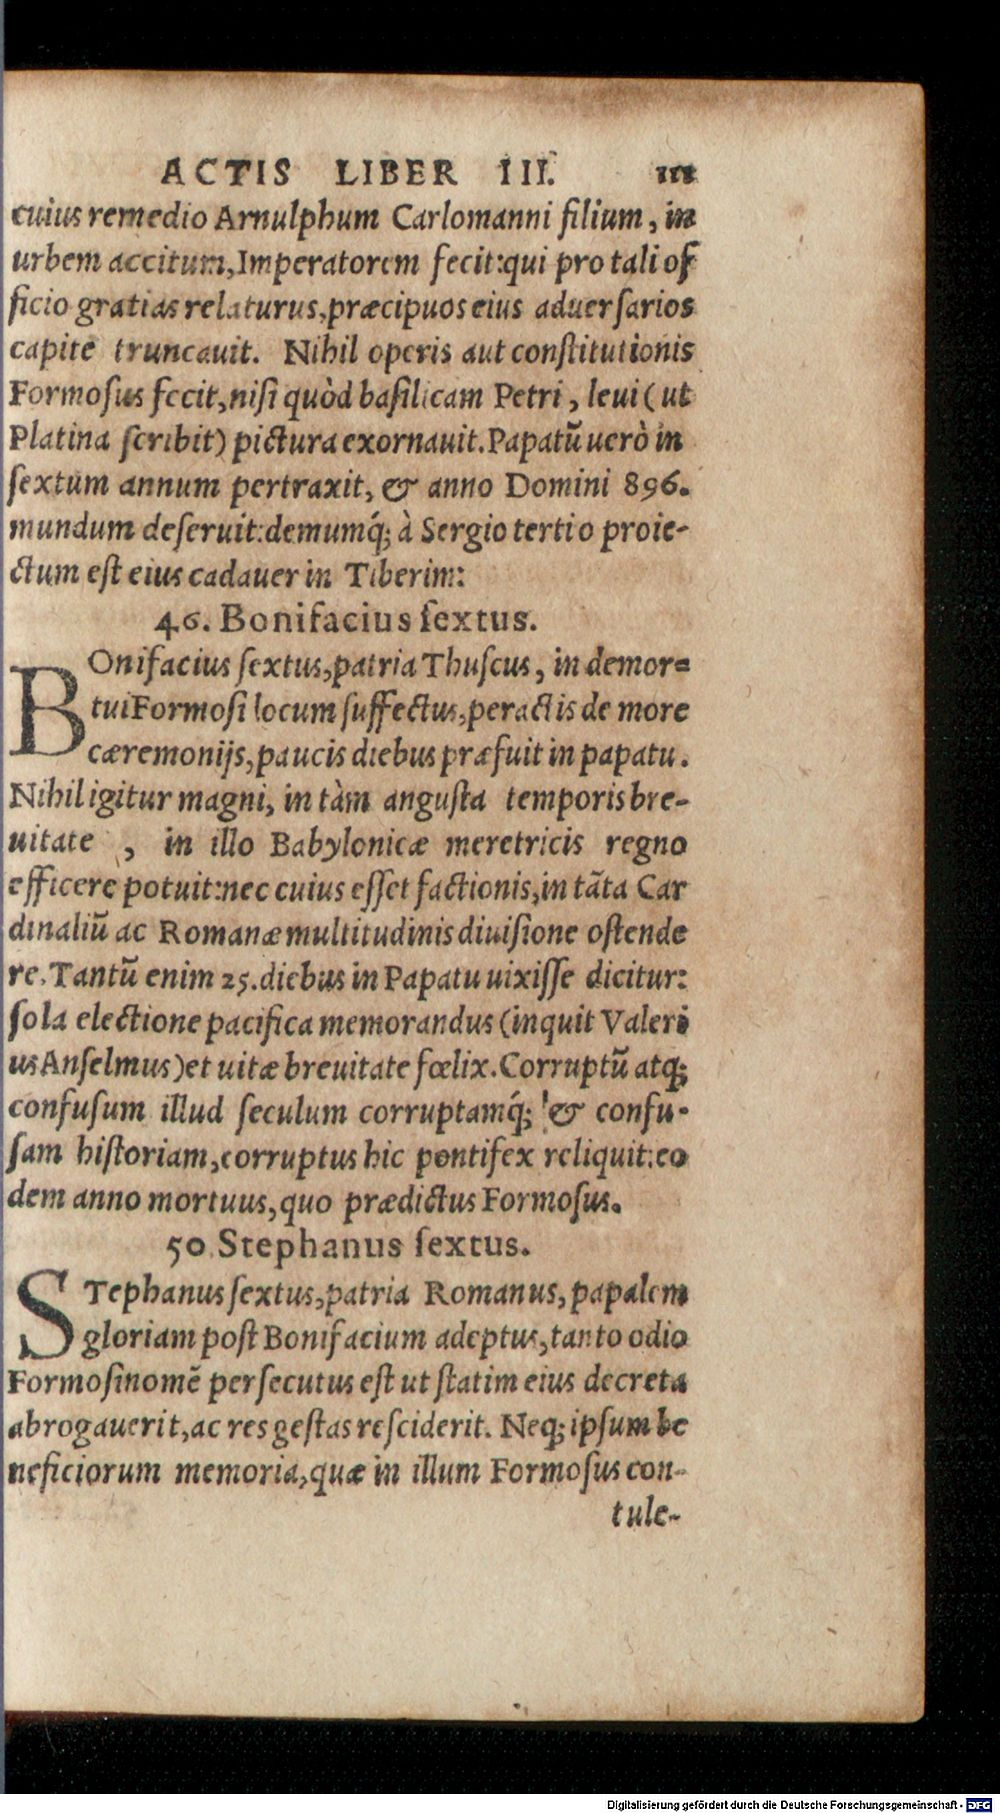 ACTIS LIBER III. 111
cuius remedio Arnulphum Carlomanni filium, in
urbem accitum, Imperatorem fecit: qui pro tali of
ficio gratias relaturus, præcipuos eius aduersarios
capite truncauit. Nihil operis aut constitutionis
Formosus fecit, nisi quòd basilicam Petri, leui (ut
Platina scribit) pictura exornauit. Papatū uerò in
sextum annum pertraxit, & anno Domini 896.
mundum deseruit: demumq́; à Sergio tertio proie-
ctum est eius cadauer in Tiberim:
46. Bonifacius sextus.
BOnifacius sextus, patria Thuscus, in demor=
tui Formosi locum suffectus, peractis de more
cæremonijs, paucis diebus præfuit in papatu.
Nihil igitur magni, in tàm angusta temporis bre-
uitate, in illo Babylonicæ meretricis regno
efficere potuit: nec cuius esset factionis, in tāta Car
dinaliū ac Romanæ multitudinis diuisione ostende
re. Tantū enim 25. diebus in Papatu uixisse dicitur:
sola electione pacifica memorandus (inquit Valeri
us Anselmus) et uitæ breuitate fœlix. Corruptū atq;
confusum illud seculum corruptamq́; & confu-
sam historiam, corruptus hic pontifex reliquit: eo
dem anno mortuus, quo prædictus Formosus.
50. Stephanus sextus.
STephanus sextus, patria Romanus, papalem
gloriam post Bonifacium adeptus, tanto odio
Formosi nomē persecutus est ut statim eius decreta
abrogauerit, ac res gestas resciderit. Neq; ipsum be
neficiorum memoria, quæ in illum Formosus con-
tule-
Digitalisierung gefördert durch die Deutsche Forschungsgemeinschaft - DFG